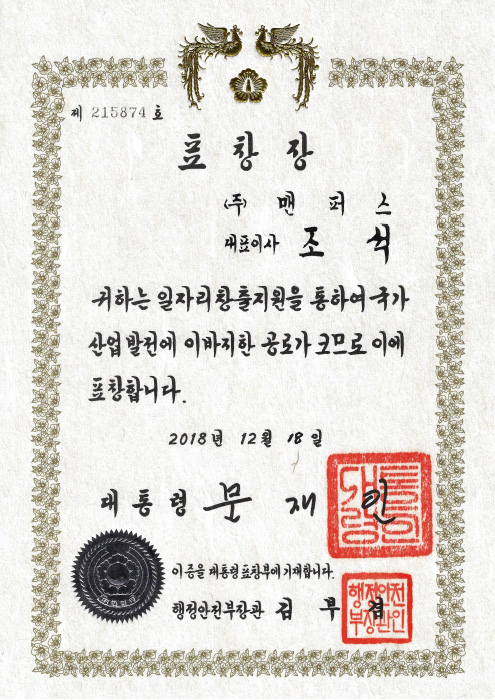 제 215874 호
표창장
(주) 맨 퍼 스
대표이사 조 석
귀하는 일자리창출지원을 통하여 국가
산업발전에 이바지한 공로가 크므로 이에
표창합니다.
2018년 12월 18일
대통령 문 재 인
대통령의인
이 증을 대통령표창부에 기재합니다.
행정안전부장관 김 부 겸
행정안전부장관인